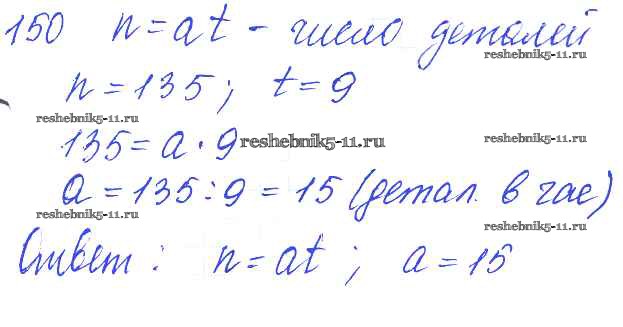 150 n = at - число деталей
reshebnik5-11.ru
n = 135; t = 9
reshebnik5-11.ru
135 = a · 9 reshebnik5-11.ru reshebnik5-11.ru
a = 135 : 9 = 15 (детал. в час)
reshebnik5-11.ru reshebnik5-11.ru
Ответ: n = at; a = 15